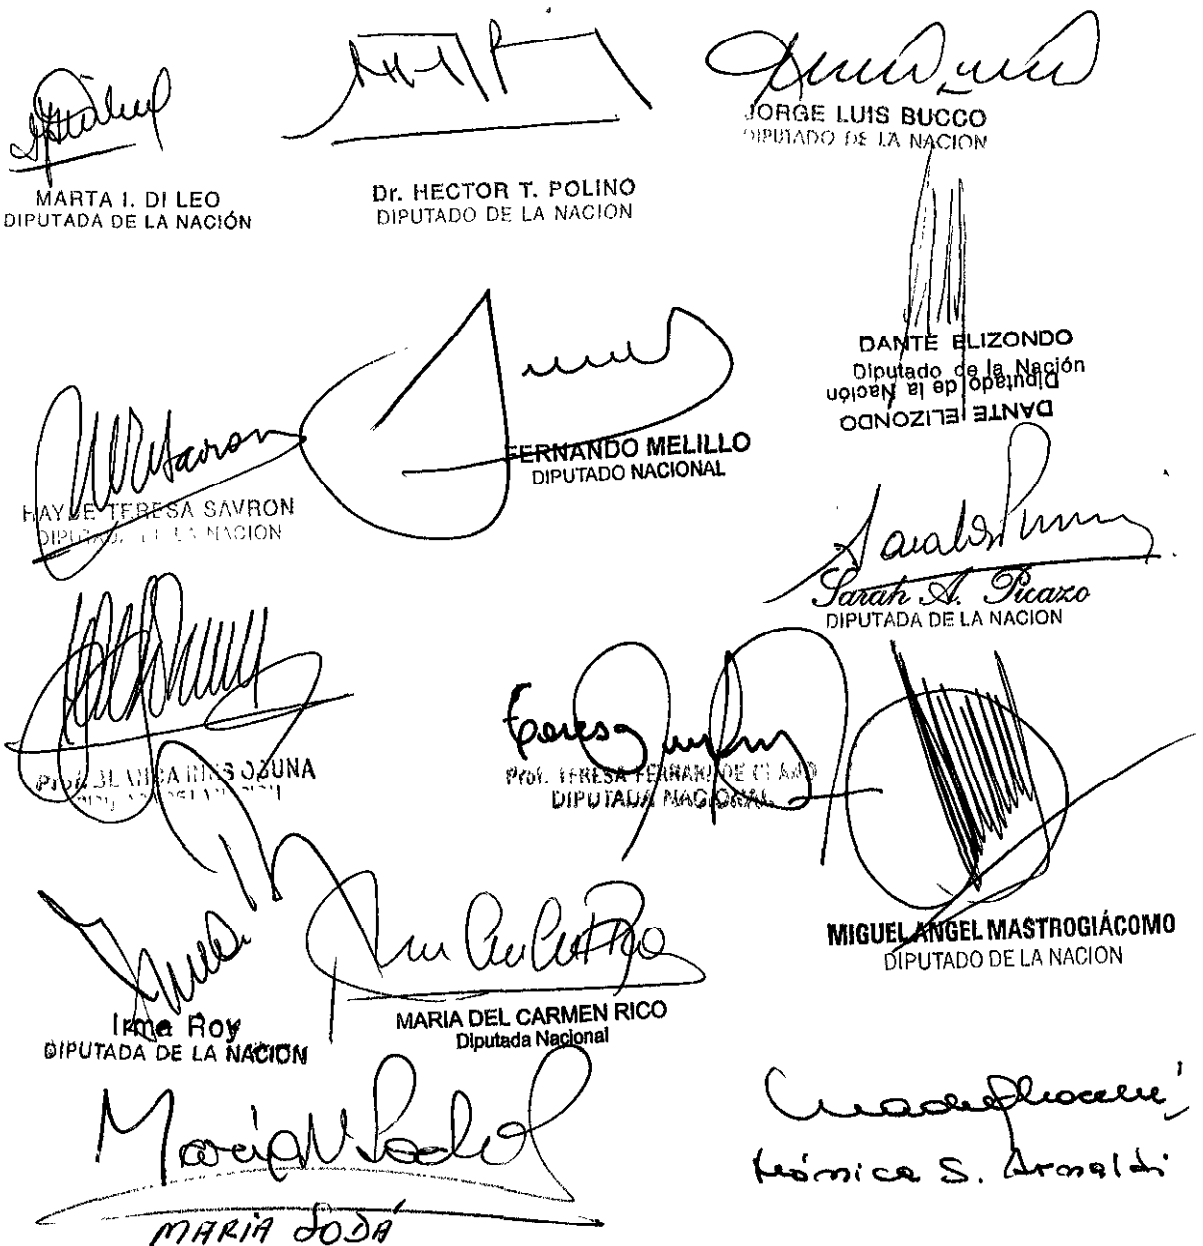 MARTA I. DI LEO
DIPUTADA DE LA NACIÓN
Dr. HECTOR T. POLINO
DIPUTADO DE LA NACION
JORGE LUIS BUCCO
DIPUTADO DE LA NACION
DANTE ELIZONDO
Diputado de la Nación
Diputado de la Nación
DANTE ELIZONDO
HAYDE TERESA SAVRON
DIPUTADA DE LA NACION
FERNANDO MELILLO
DIPUTADO NACIONAL
Sarah A. Picazo
DIPUTADA DE LA NACION
Prof. BLANCA INES OSUNA
Teresa
Prof. TERESA FERRARI DE
DIPUTADA NACIONAL
MIGUEL ANGEL MASTROGIÁCOMO
DIPUTADO DE LA NACION
Irma Roy
DIPUTADA DE LA NACION
MARIA DEL CARMEN RICO
Diputada Nacional
MARIA SODÁ
Mónica S. Arnaldi